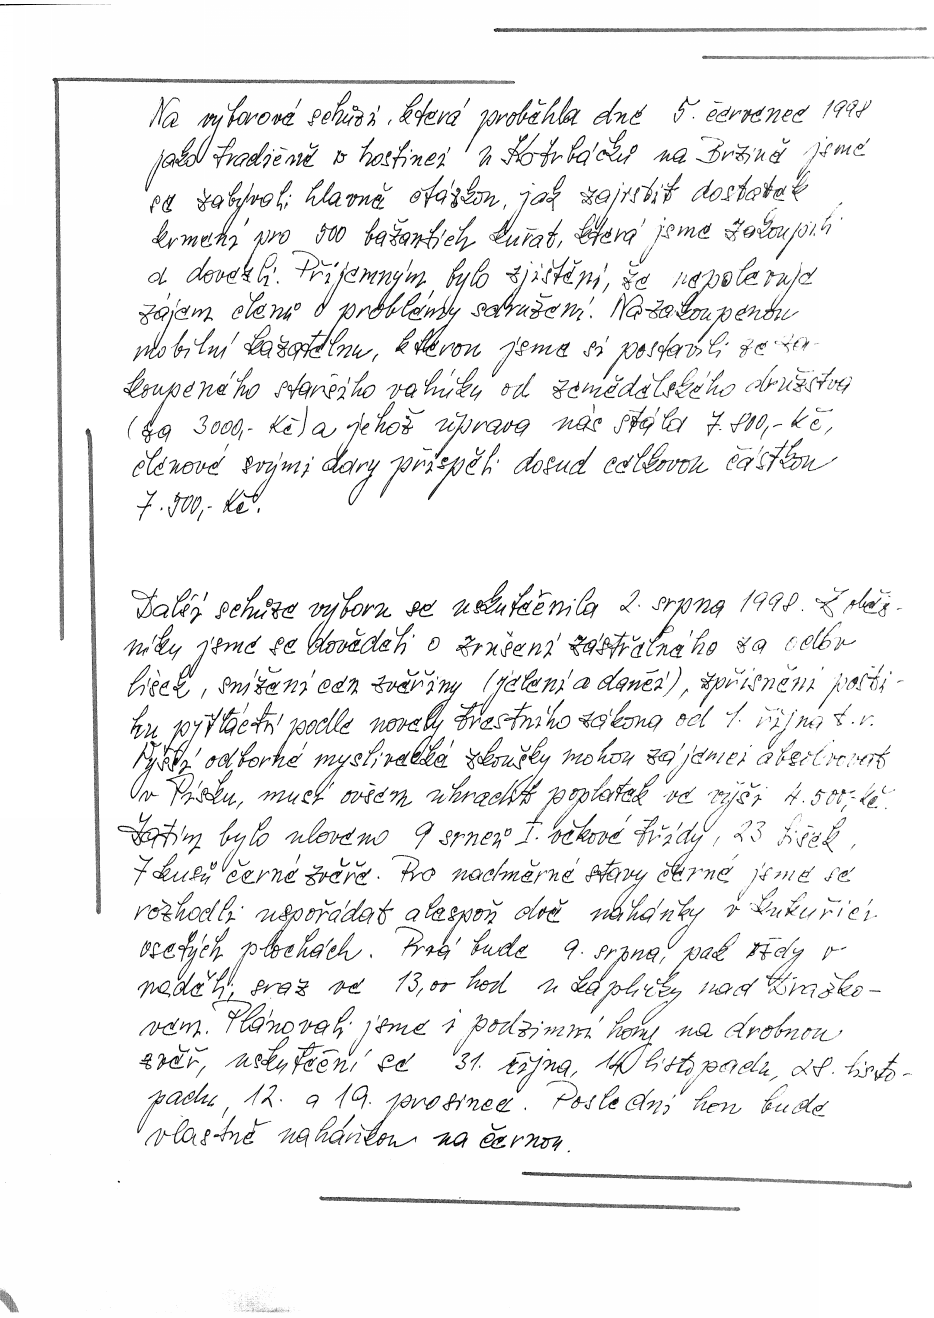 Na výborové schůzi, která proběhla dne 5. červenec 1998
jako tradičně v hostinci u Kotrbáčků na Brzině jsme
se zabývali hlavně otázkou, jak zajistit dostatek
krmení pro 500 bažantích kuřat, která jsme zakoupili
a dovezli. Příjemným bylo zjištění, že nepolevuje
zájem členů o problémy sdružení. Na zakoupenou
mobilní kazatelnu, kterou jsme si postavili ze za-
koupeného staršího valníku od zemědělského družstva
(za 3000,- Kč) a jehož úprava nás stála 7.800,- Kč,
členové svými dary přispěli dosud celkovou částkou
7.500,- Kč.
Další schůze výboru se uskutečnila 2. srpna 1998. Z oběž-
níku jsme se dověděli o zrušení zástřelného za odlov
lišek, snížení cen zvěřiny (jelení a daněí), zpřísnění posti-
hu pytláctví podle novely trestního zákona od 1. října t.r.
Vyšší odborné myslivecké zkoušky mohou zájemci absolvovat
v Písku, musí ovšem uhradit poplatek ve výši 4.500,- Kč.
Zatím bylo uloveno 9 srnců I. věkové třídy, 23 lišek,
7 kusů černé zvěře. Pro nadměrné stavy černé jsme se
rozhodli uspořádat alespoň dvě naháňky v kukuřicí
osetých plochách. Prvá bude 9. srpna, pak vždy v
neděli, sraz ve 13,00 hod u kapličky nad
vem. Plánovali jsme i podzimní hony na drobnou
zvěř, uskuteční se 31. října, 14. listopadu, 28. listo-
padu, 12. a 19. prosince. Poslední hon bude
vlastně naháňkou na černou.